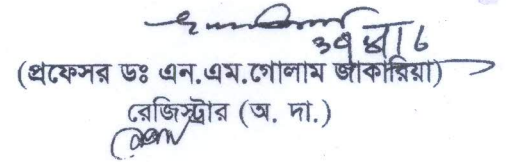 (প্রফেসর ডঃ এন.এম.গোলাম জাকারিয়া)
রেজিস্ট্রার (অ. দা.)